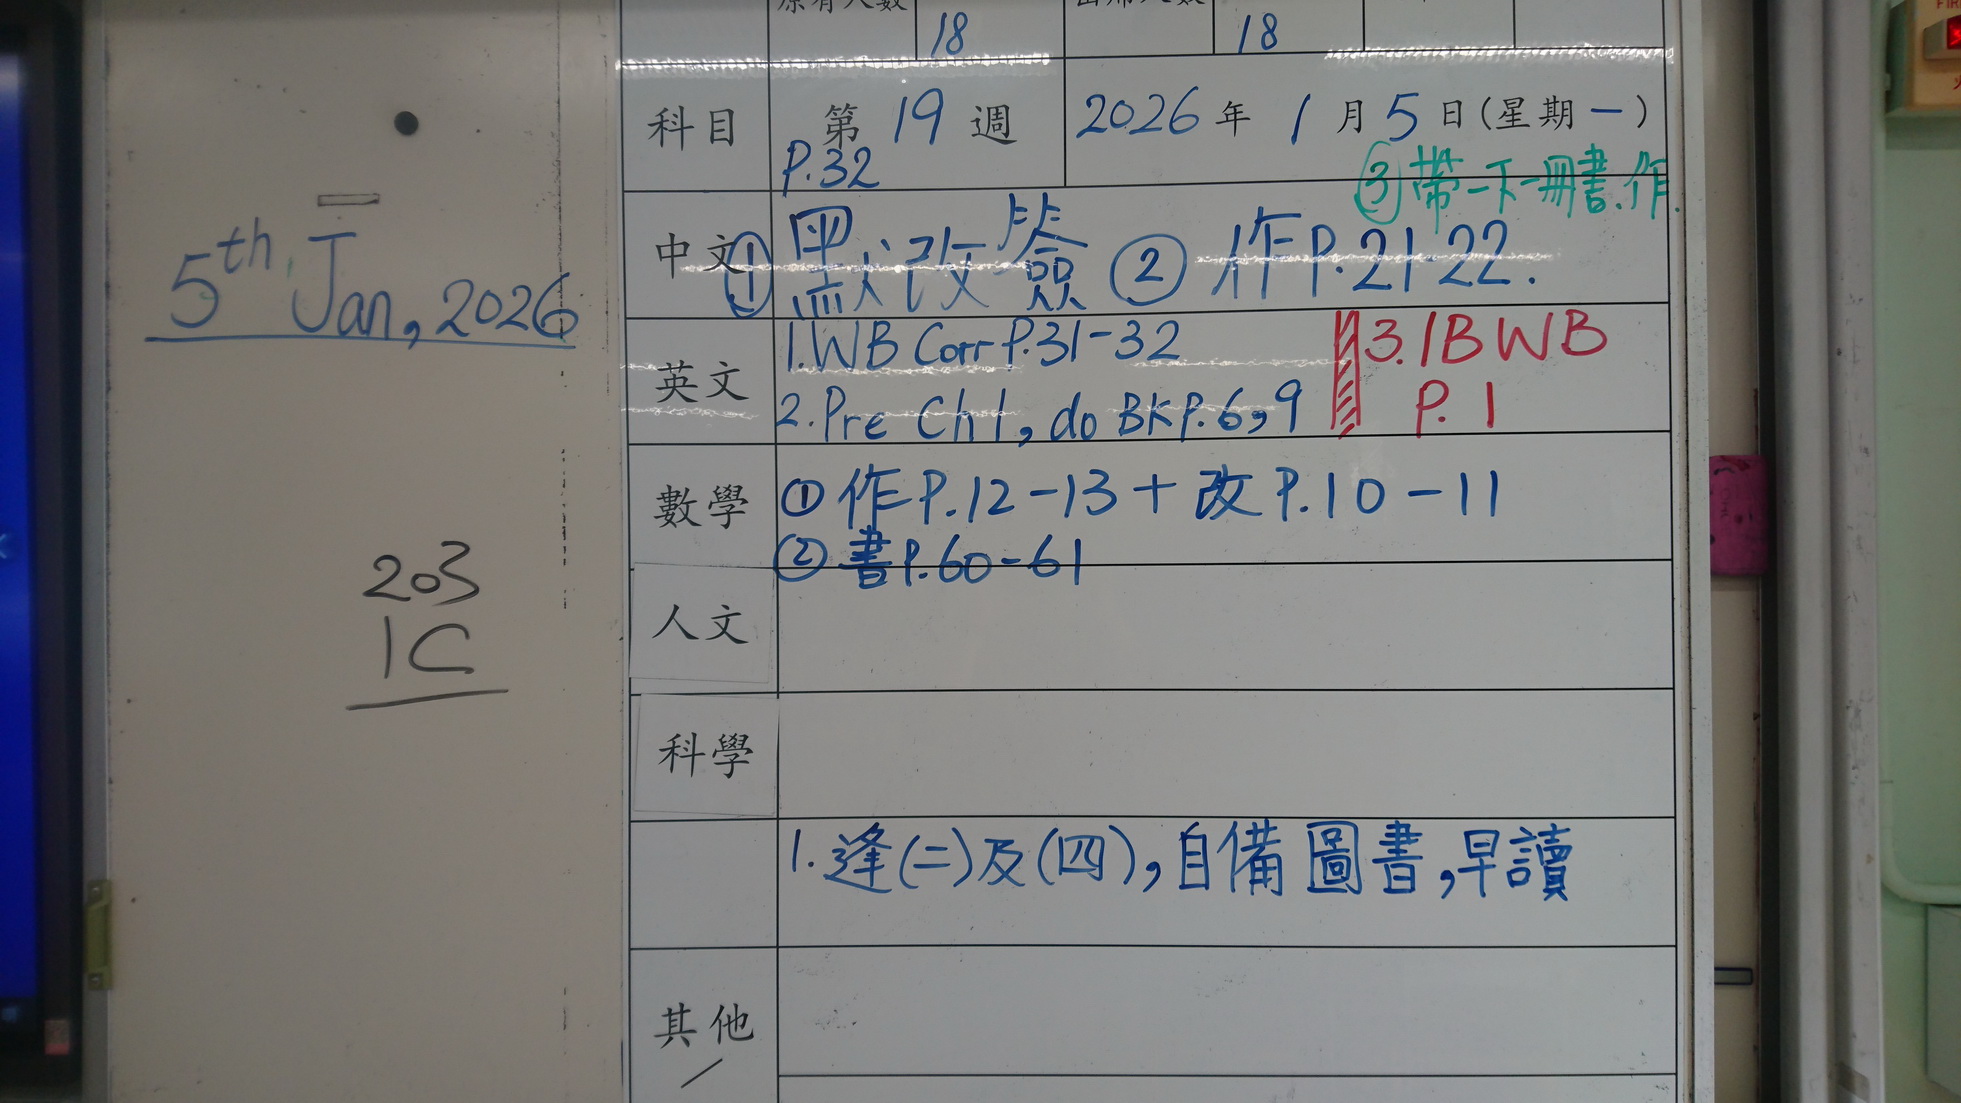 原有人數 18 出席人數 18
科目 第 19 週 2026 年 1 月 5 日 (星期一)
P.32
③帶一下一冊書.作.
中文 ① 默改簽 ② 作P.21-22.
英文 1. WB Corr P.31-32
2. Pre Ch 1, do BK P.6,9
3. 1B WB
P. 1
數學 ① 作P.12-13 + 改P.10-11
② 書P.60-61
人文
科學
1. 逢(二)及(四),自備圖書,早讀
其他
5th Jan, 2026
203
1C
FIR